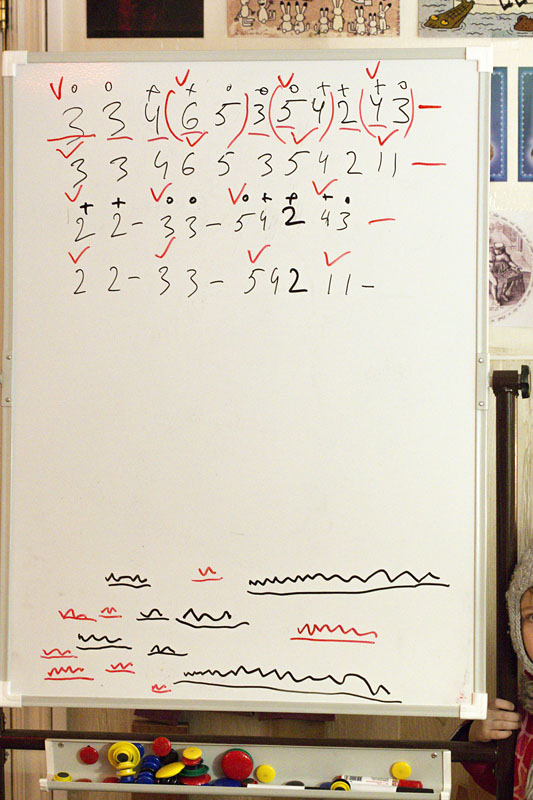 3 3 4 (6 5) 3 (5 4) 2 (4 3) –
3 3 4 6 5 3 5 4 2 1 1 –
2 2 – 3 3 – 5 4 2 4 3 –
2 2 – 3 3 – 5 4 2 1 1 –